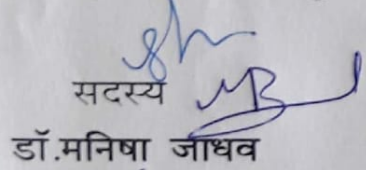 सदस्य
डॉ.मनिषा जाधव